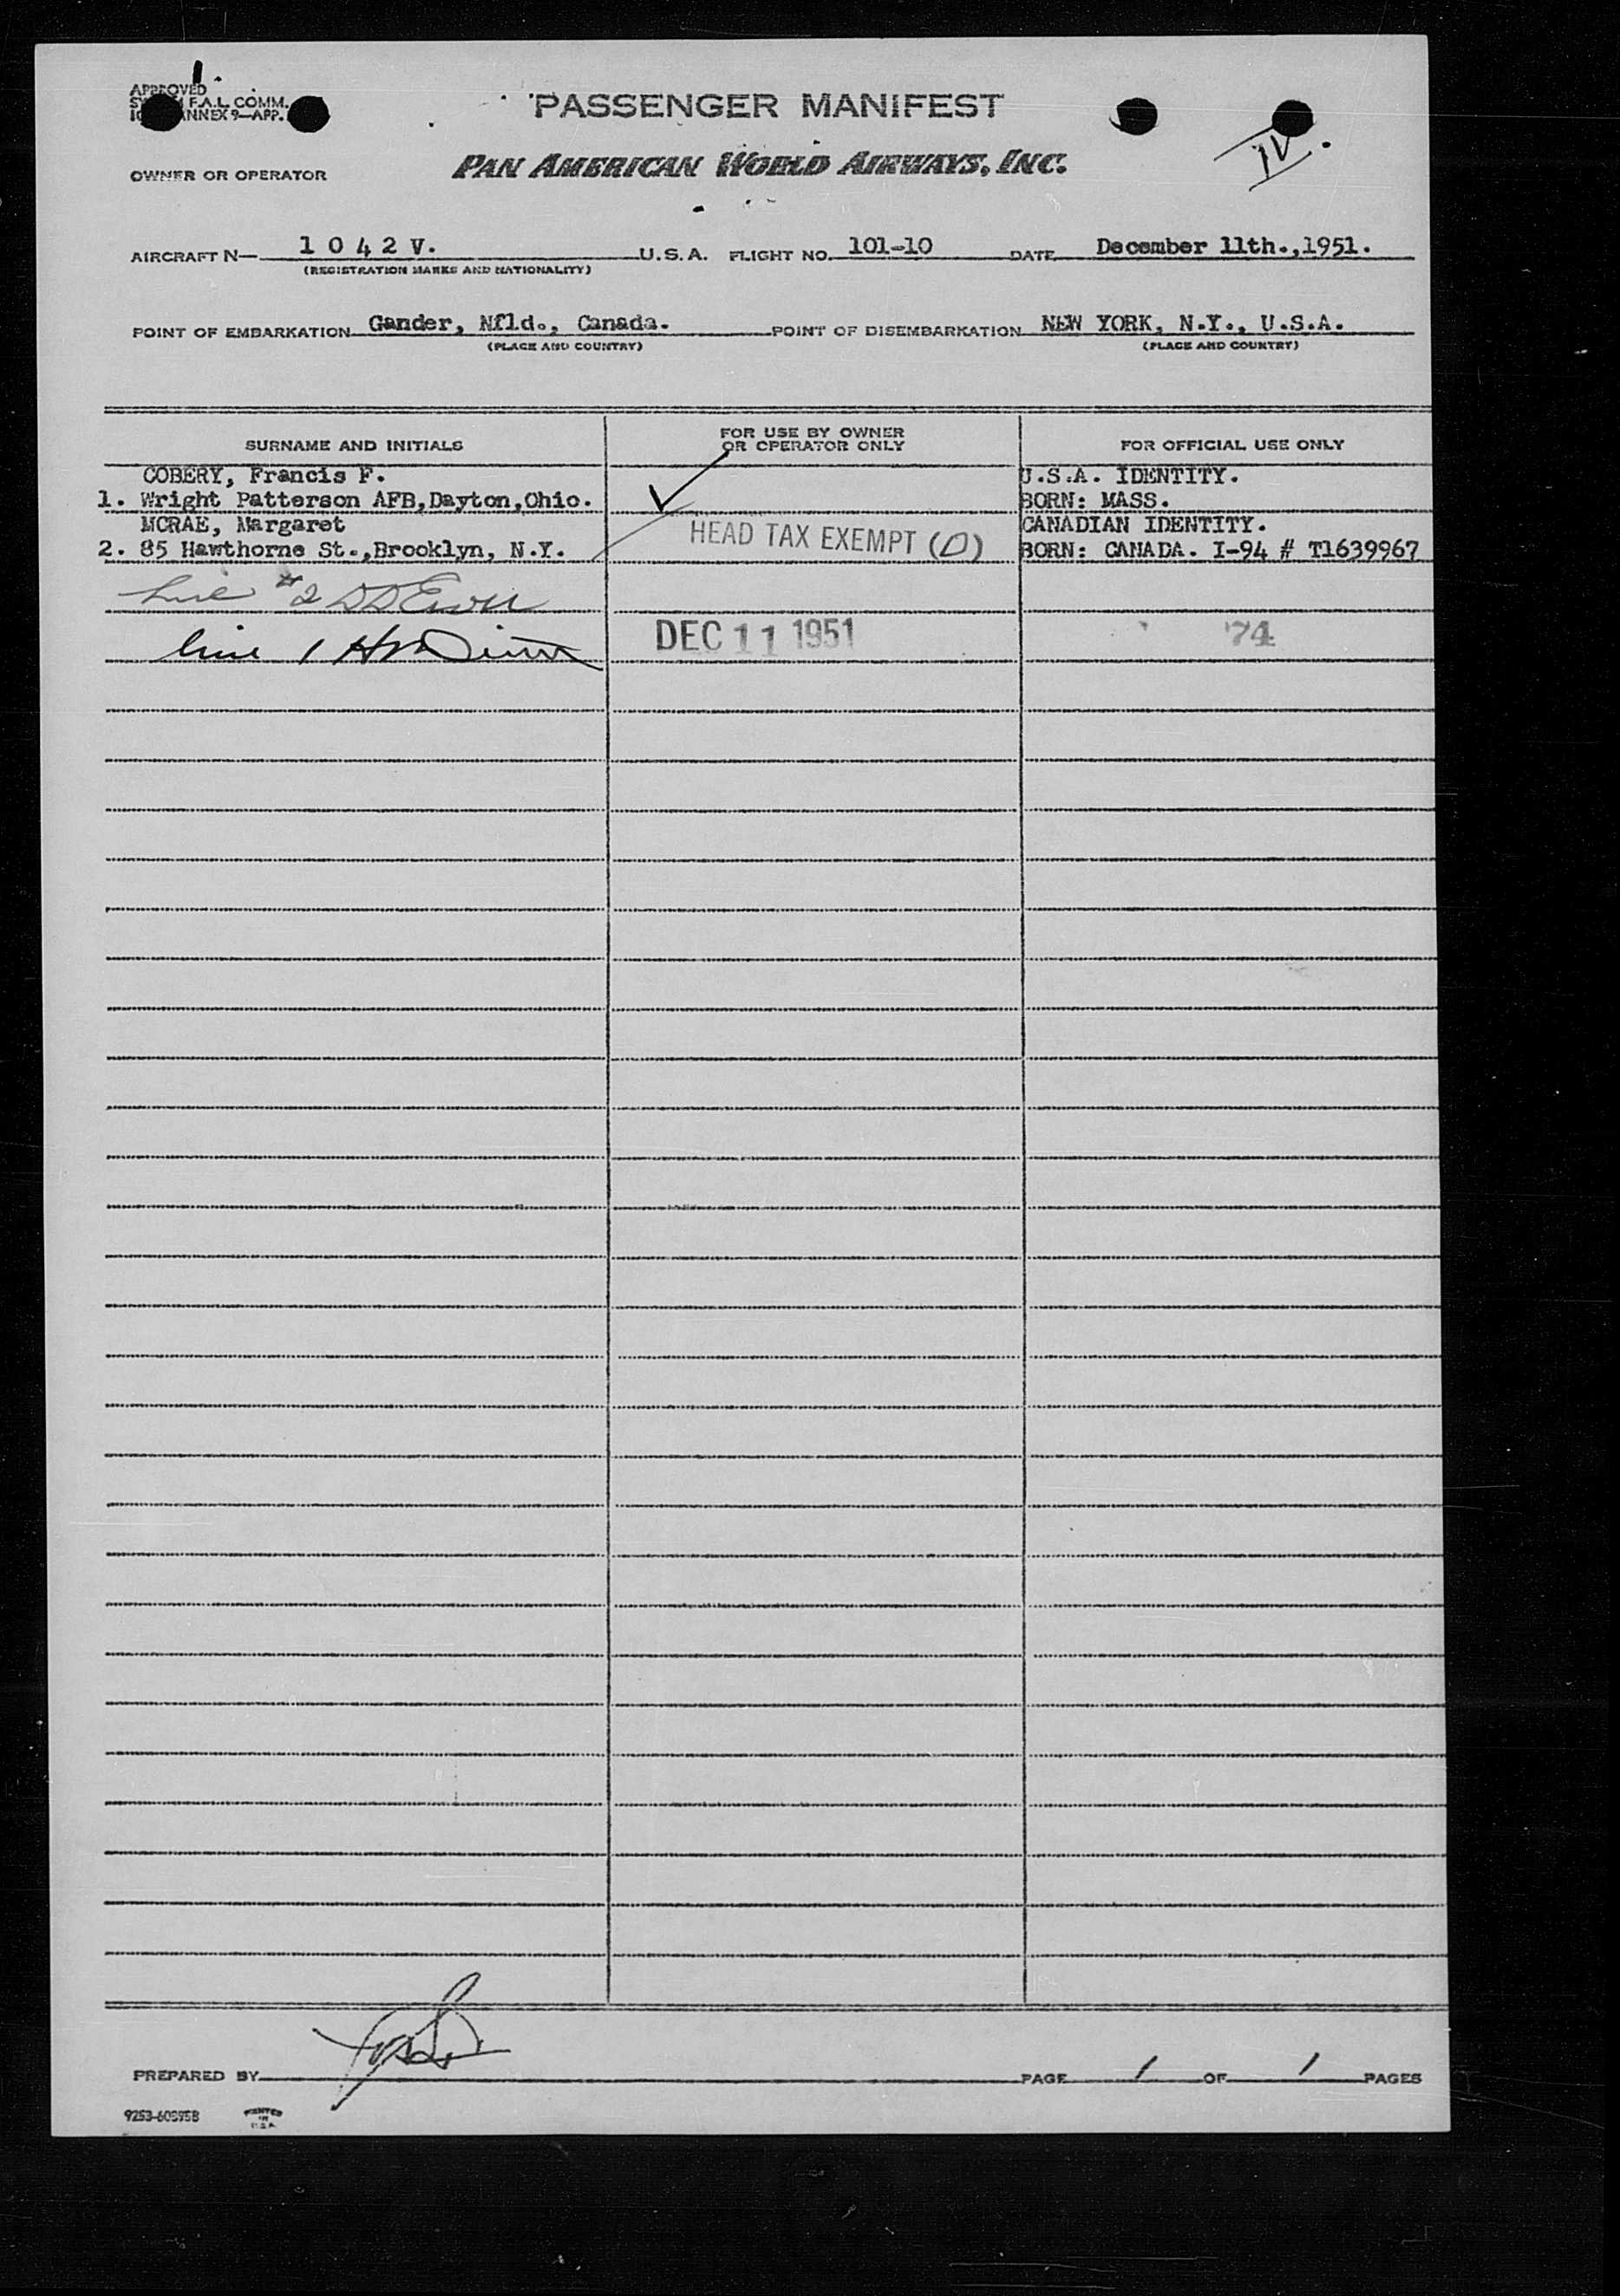 APPROVED
F.A.L. COMM.
ANNEX 9—APP.
PASSENGER MANIFEST
OWNER OR OPERATOR
PAN AMERICAN WORLD AIRWAYS, INC.
AIRCRAFT N— 1 0 4 2 V. U.S.A. FLIGHT NO. 101-10 DATE December 11th.,1951.
(REGISTRATION MARKS AND NATIONALITY)
POINT OF EMBARKATION Gander, Nfld., Canada. POINT OF DISEMBARKATION NEW YORK, N.Y., U.S.A.
(PLACE AND COUNTRY) (PLACE AND COUNTRY)
SURNAME AND INITIALS
FOR USE BY OWNER
OR OPERATOR ONLY
FOR OFFICIAL USE ONLY
COBERY, Francis F. U.S.A. IDENTITY.
1. Wright Patterson AFB,Dayton,Ohio. BORN: MASS.
MCRAE, Margaret CANADIAN IDENTITY.
2. 85 Hawthorne St.,Brooklyn, N.Y. HEAD TAX EXEMPT (D) BORN: CANADA. I-94 # T1639967
Line #2
line 1 DEC 11 1951 74
PREPARED BY PAGE 1 OF 1 PAGES
PRINTED
IN
U.S.A.